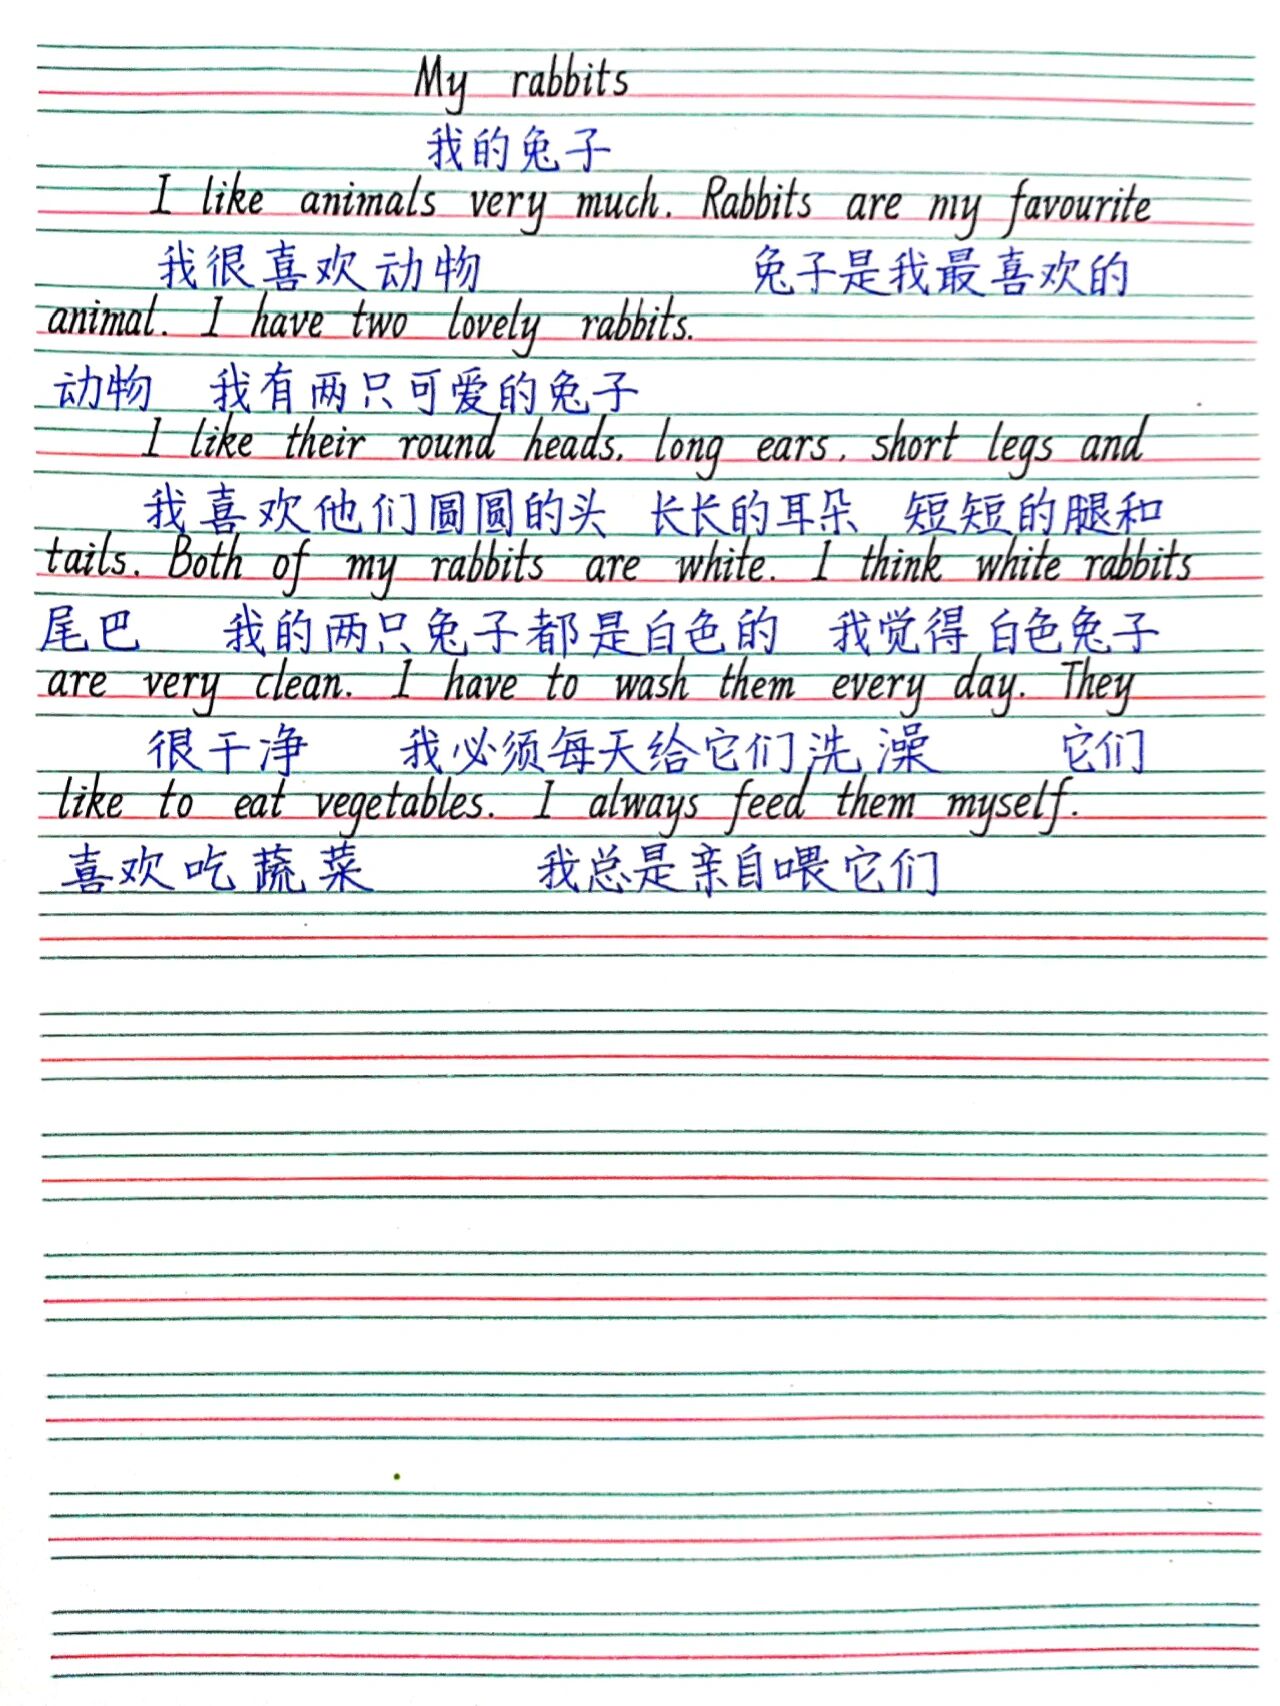 My rabbits
我的兔子
I like animals very much. Rabbits are my favourite
我很喜欢动物 兔子是我最喜欢的
animal. I have two lovely rabbits.
动物 我有两只可爱的兔子
I like their round heads, long ears, short legs and
我喜欢他们圆圆的头 长长的耳朵 短短的腿和
tails. Both of my rabbits are white. I think white rabbits
尾巴 我的两只兔子都是白色的 我觉得白色兔子
are very clean. I have to wash them every day. They
很干净 我必须每天给它们洗澡 它们
like to eat vegetables. I always feed them myself.
喜欢吃蔬菜 我总是亲自喂它们